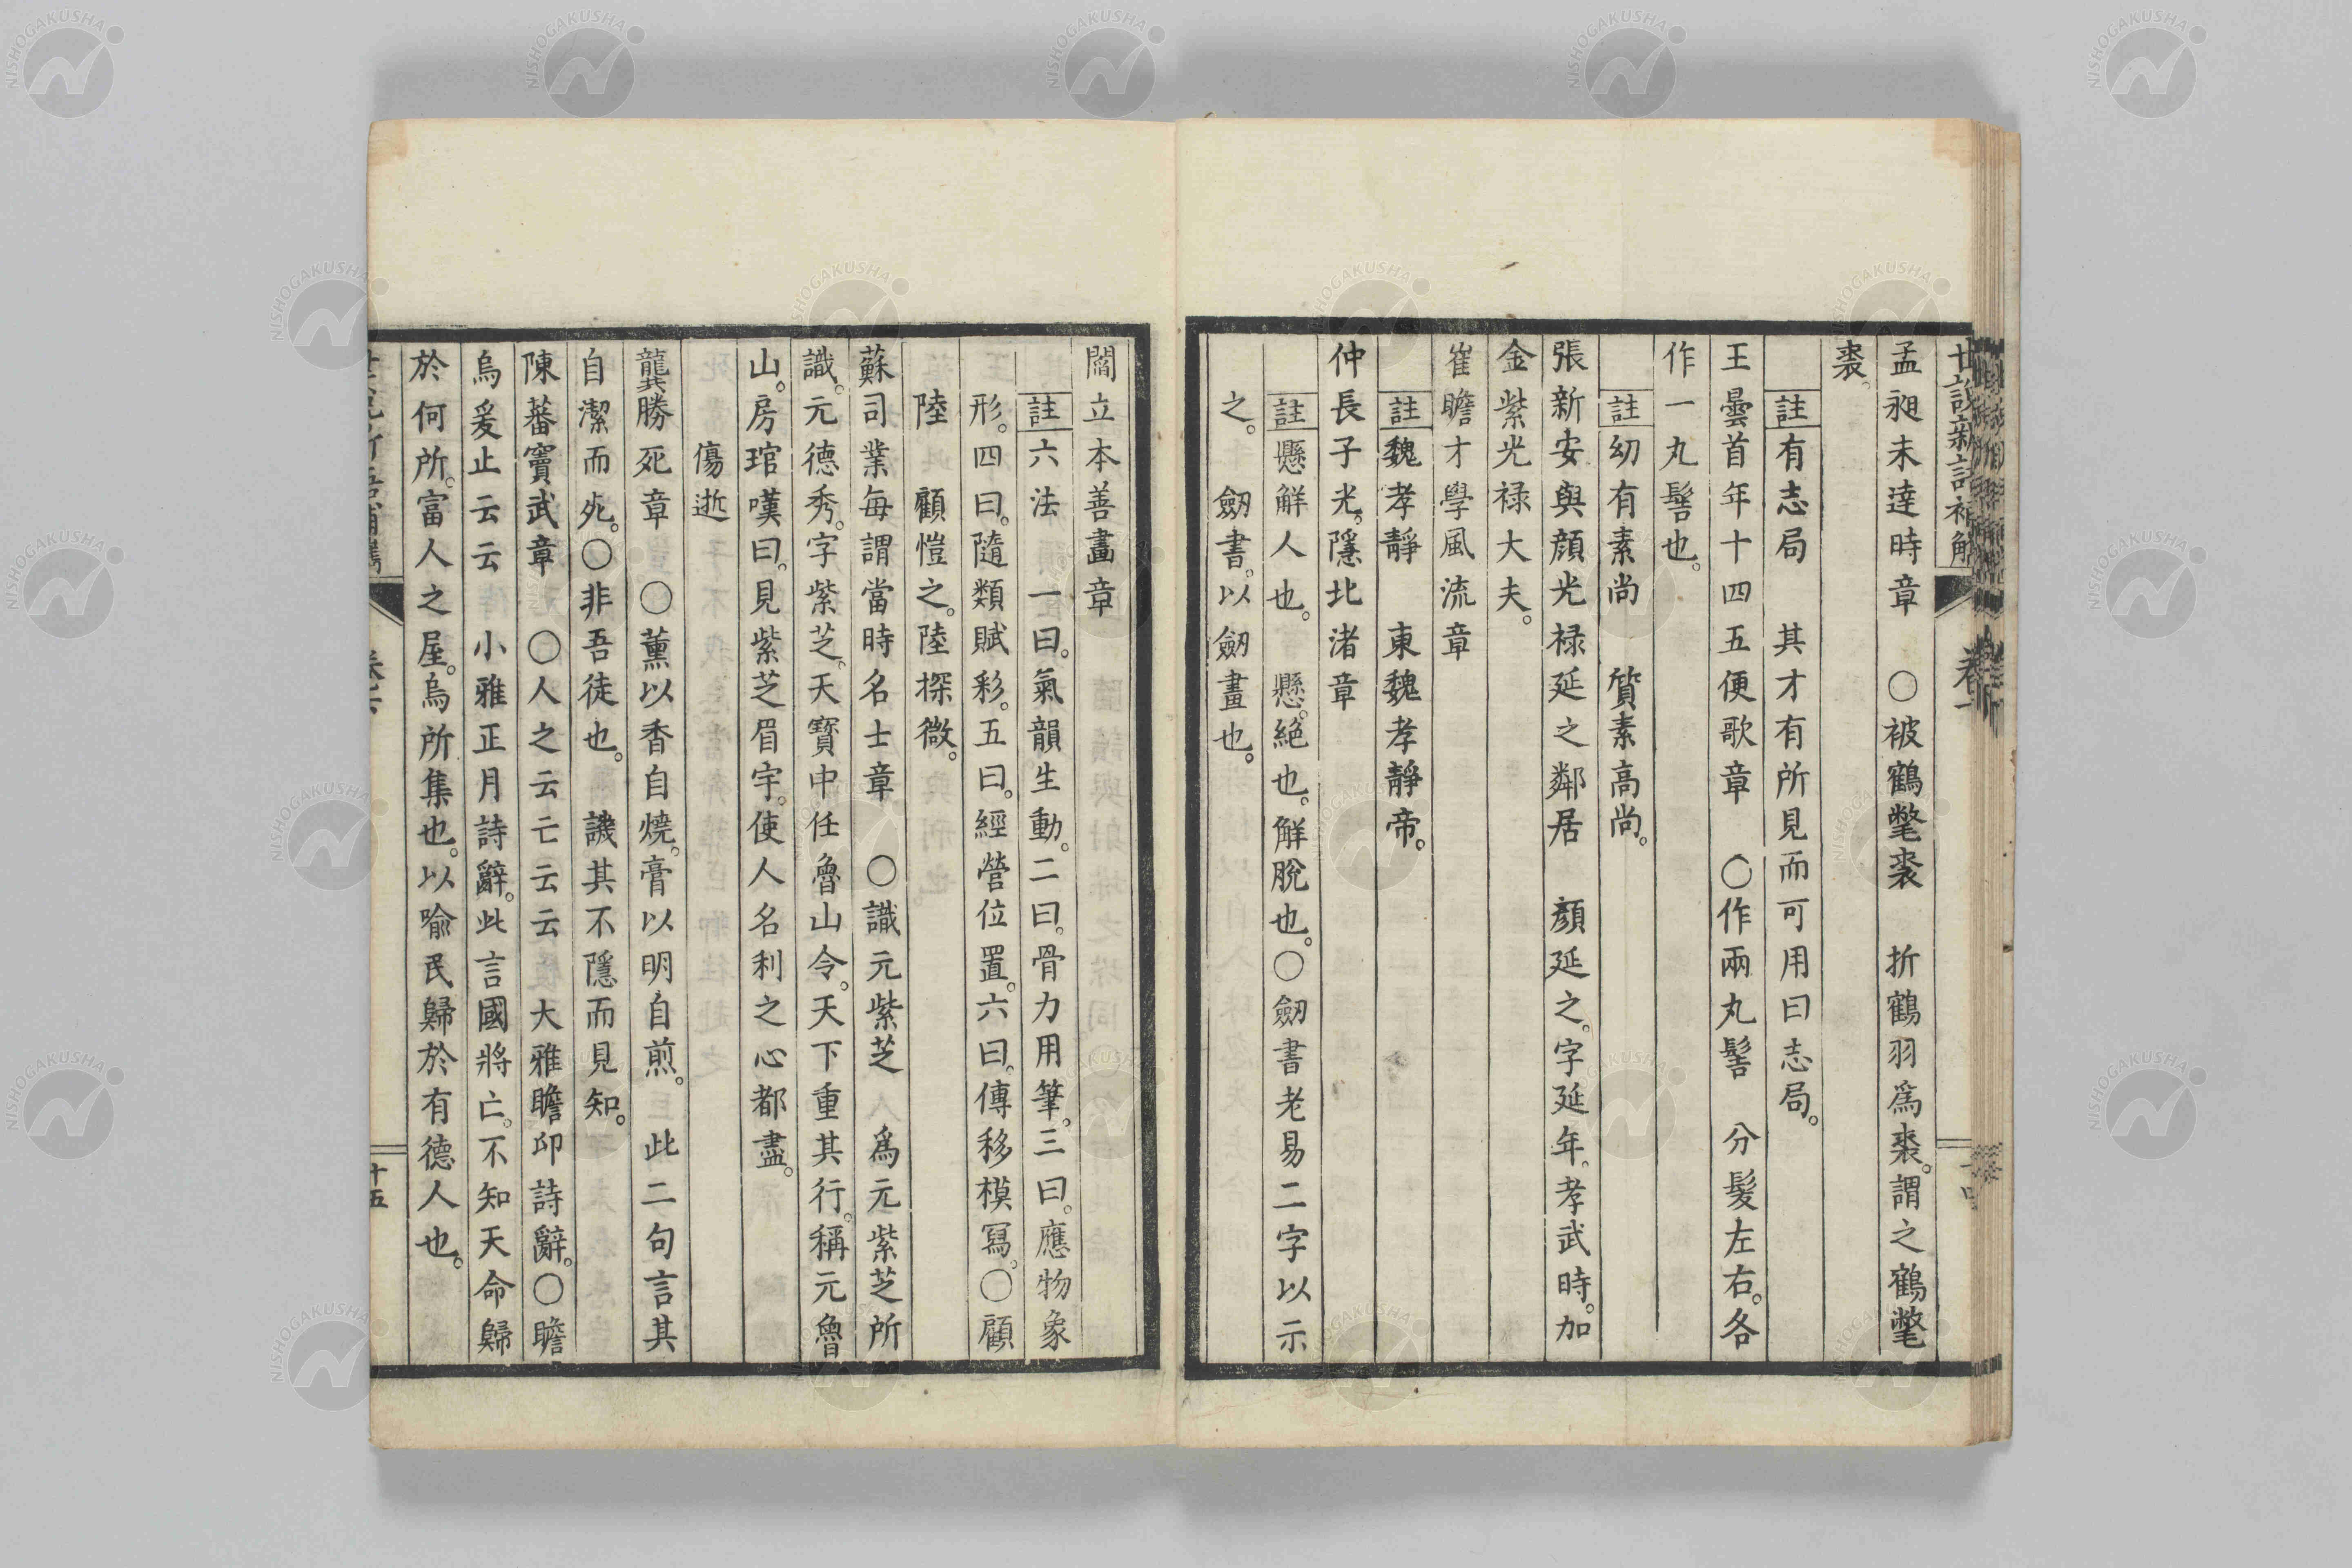 孟昶未達時章　○被鶴氅裘　折鶴羽爲裘。謂之鶴氅
裘。
註有志局　其才有所見而可用曰志局。
王曇首年十四五便歌章　○作兩丸髻　分髮左右。各
作一丸髻也。
註幼有素尚　質素高尚。
張新安與顔光禄延之鄰居　顏延之。字延年。孝武時。加
金紫光禄大夫。
崔瞻才學風流章
註魏孝靜　東魏孝靜帝。
仲長子光。隱北渚章
註懸解人也。　懸。絕也。解脫也。○劒書老易二字以示
之。　劒書。以劒畫也。
閻立本善畫章
註六法　一曰。氣韻生動。二曰。骨力用筆。三曰。應物象
形。四曰。隨類賦彩。五曰。經營位置。六曰。傳移模寫。○顧
陸　顧愷之。陸探微。
蘇司業每謂當時名士章　○識元紫芝　爲元紫芝所
識。元德秀。字紫芝。天寶中任魯山令。天下重其行。稱元魯
山。房琯嘆曰。見紫芝眉宇。使人名利之心都盡。
傷逝
龔勝死章　○薰以香自燒。膏以明自煎。　此二句言其
自潔而死。○非吾徒也。　譏其不隱而見知。
陳蕃竇武章　○人之云亡云云　大雅瞻卬詩辭。○瞻
烏爰止云云　小雅正月詩辭。此言國將亡。不知天命歸
於何所。富人之屋。烏所集也。以喻民歸於有德人也。
十五